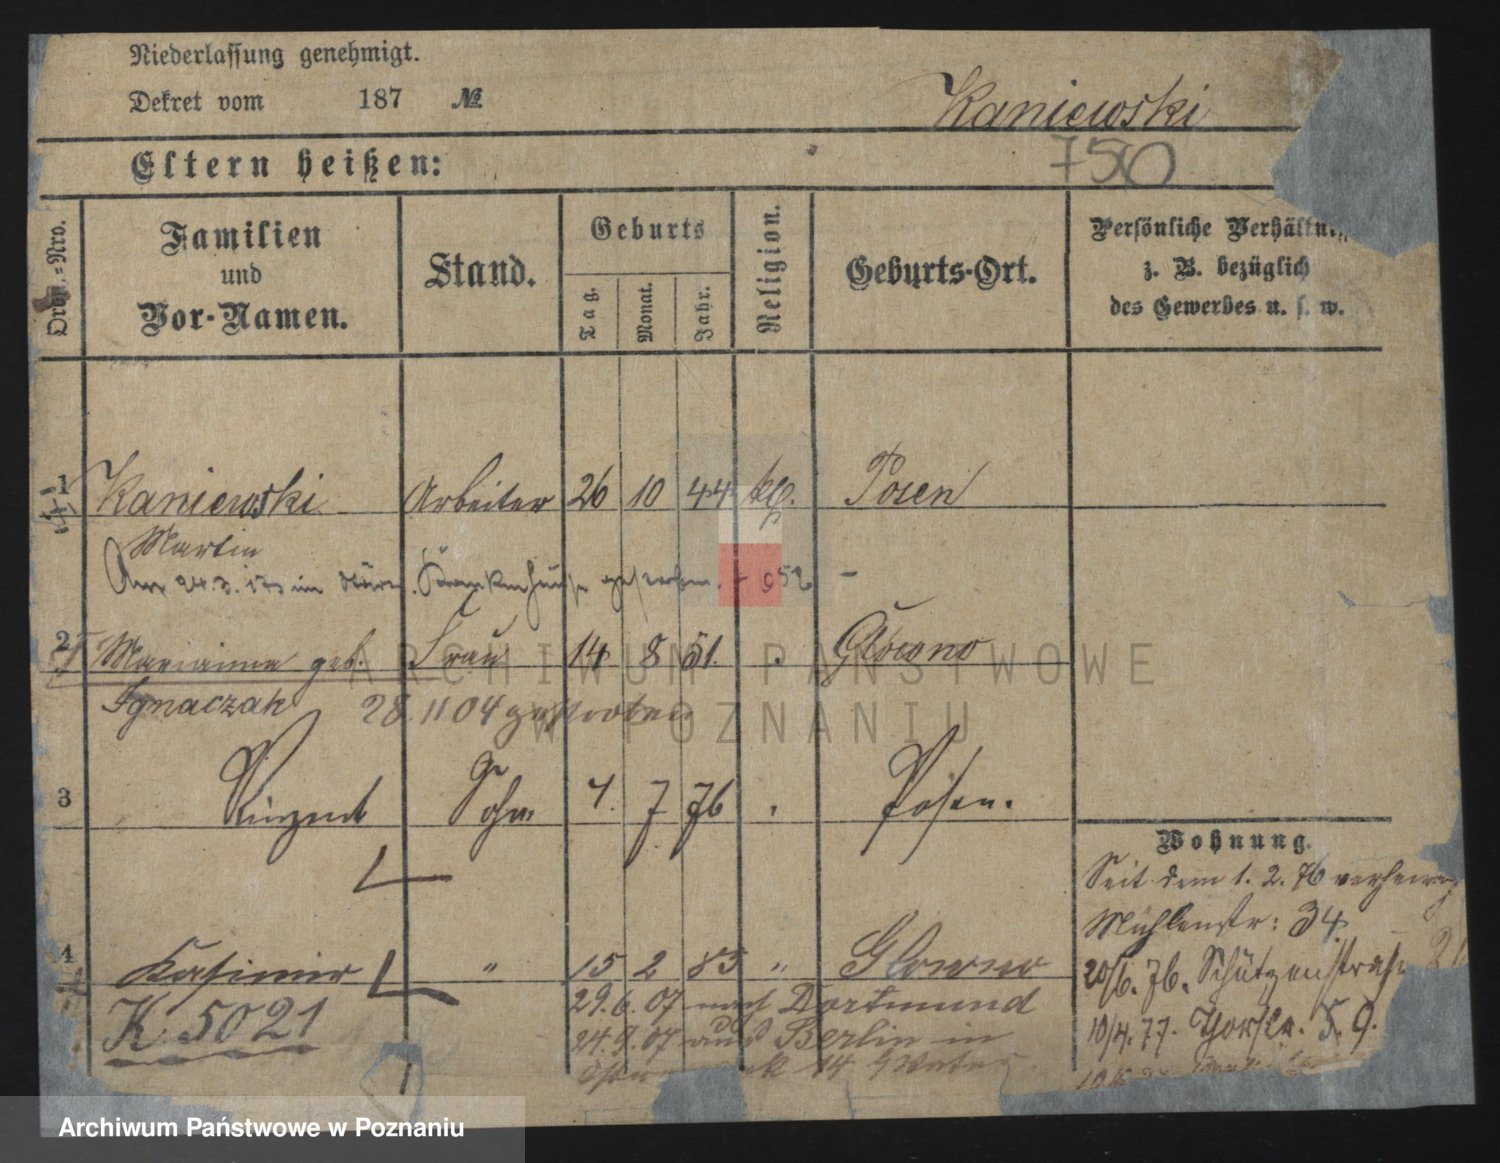 Niederlassung genehmigt.
Dekret vom 187 №
Kaniewski
Eltern heißen:
750
Ordn.-Nro.
Familien
und
Vor-Namen.
Stand.
Geburts
Tag.
Monat.
Jahr.
Religion.
Geburts-Ort.
Persönliche Verhältn
z. B. bezüglich
des Gewerbes u. s. w.
1 Kaniewski Arbeiter 26 10 44 kth. Posen
Martin
im Krankenhause gestorben.
2 Marianna geb. Frau 14 8 51. Główno
Ignaczak 28.11 04 gestorben
3 Vinzent Sohn 4. 7 76 Posen.
Wohnung.
Seit dem 1. 2. 76
Mühlenstr: 34
4 Kasimir " 15 2 85 " Glowno
20/6. 76. Schützenstraße
K. 5021
29.6.07 nach Dortmund
24.9.07 aus Berlin in
10/4. 77. 5. 9.
14
ARCHIWUM PAŃSTWOWE
W POZNANIU
Archiwum Państwowe w Poznaniu